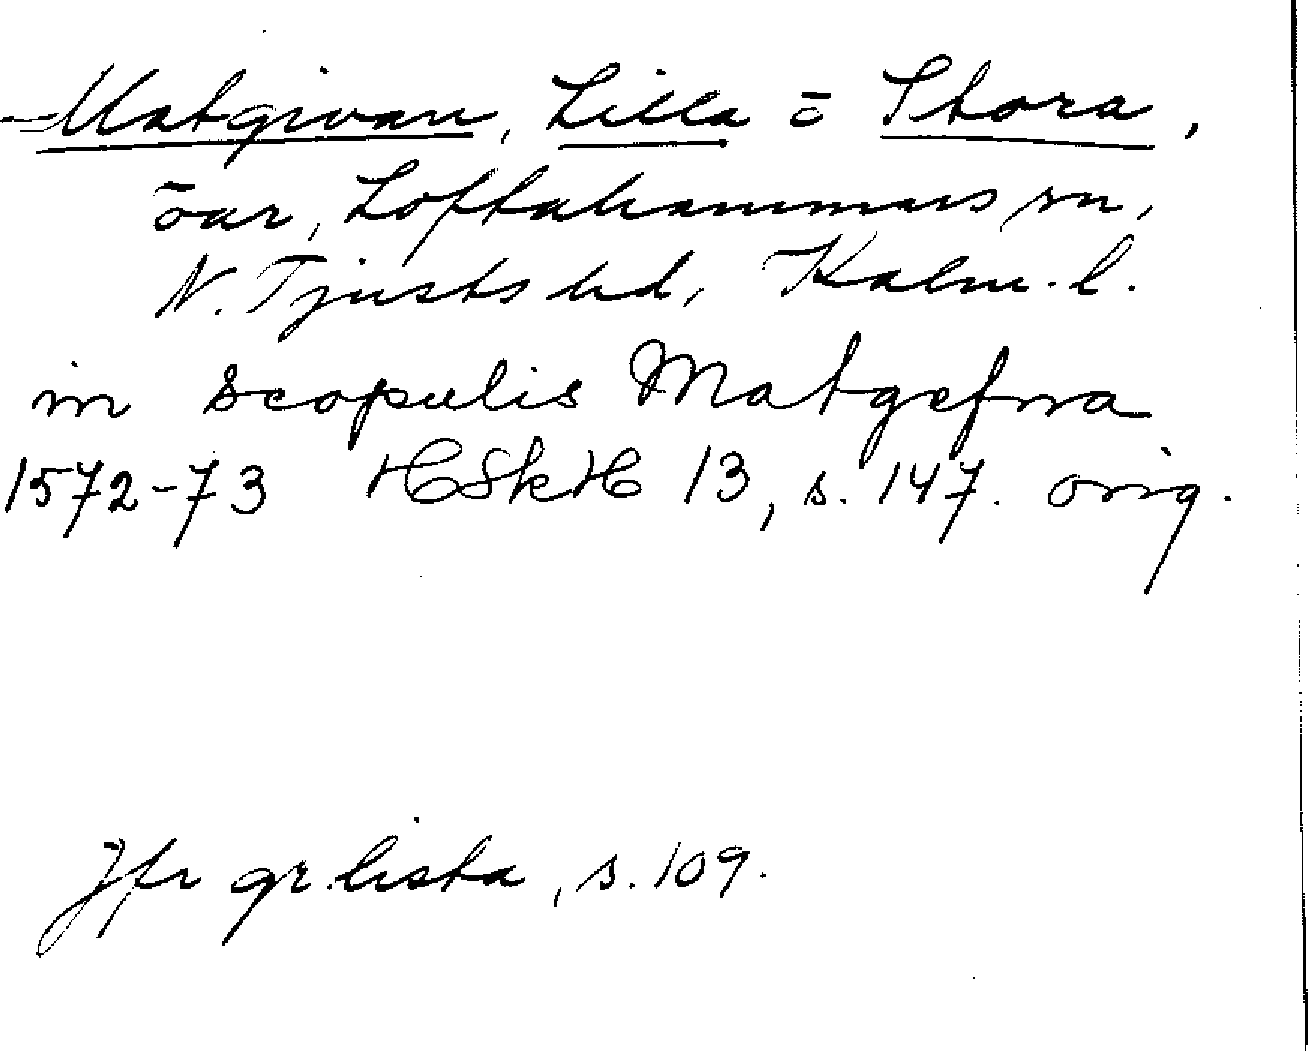 Matgivan, Lilla o Stora,
öar, Loftahammars sn,
N. Tjusts hd, Kalm. l.
in scopulis Matgefwa
1572-73 HSkH 13, s. 147. orig.
Jfr gr.lista, s. 109.